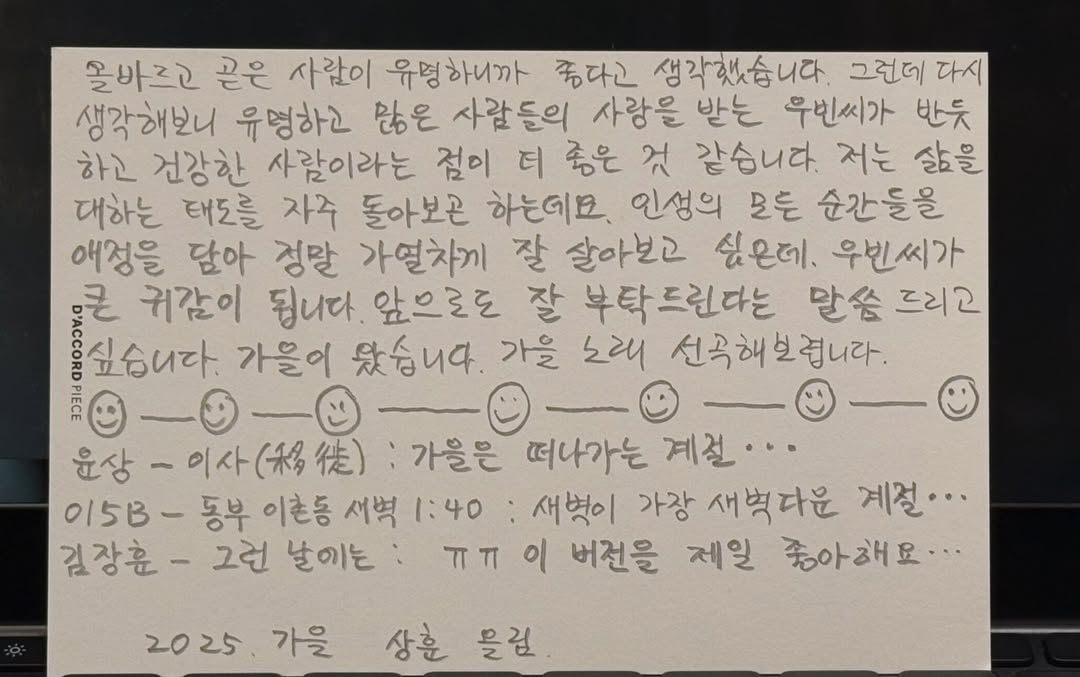 올바르고 곧은 사람이 유명하니까 좋다고 생각했습니다. 그런데 다시
생각해보니 유명하고 많은 사람들의 사랑을 받는 우빈씨가 반듯
하고 건강한 사람이라는 점이 더 좋은 것 같습니다. 저는 삶을
대하는 태도를 자주 돌아보곤 하는데요. 인생의 모든 순간들을
애정을 담아 정말 가열차게 잘 살아보고 싶은데, 우빈씨가
큰 귀감이 됩니다. 앞으로도 잘 부탁드린다는 말씀 드리고
싶습니다. 가을이 왔습니다. 가을 노래 선곡해보렵니다.
D'ACCORD PIECE
윤상 - 이사(移徙) : 가을은 떠나가는 계절...
015B - 동부 이촌동 새벽 1:40 : 새벽이 가장 새벽다운 계절...
김장훈 - 그런 날에는 : ㅠㅠ 이 버전을 제일 좋아해요...
2025. 가을 상훈 드림.